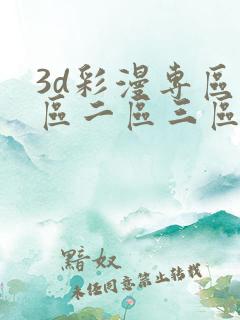 3d彩漫專區
區二區三區
黯奴
未经同意禁止转载